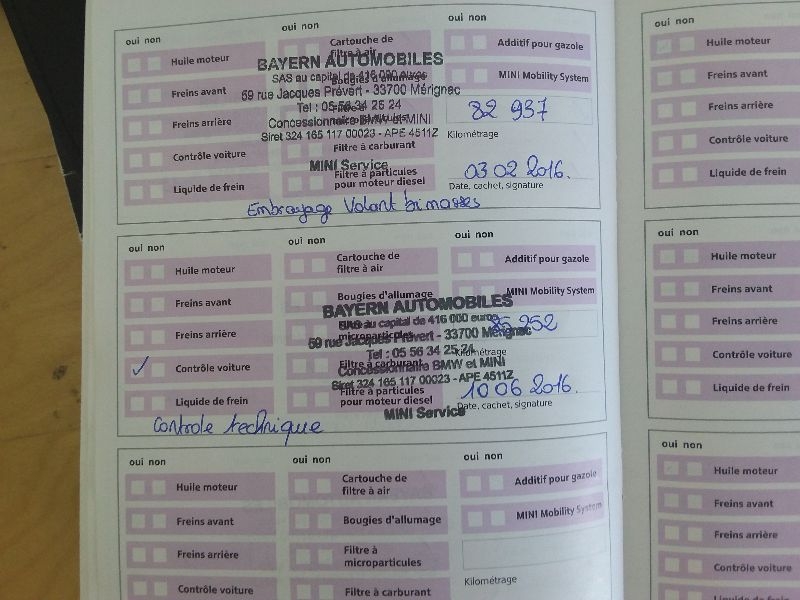 oui non
oui non
oui non
Huile moteur
Cartouche de
filtre à air
Additif pour gazole
Freins avant
Bougies d'allumage
MINI Mobility System
Freins arrière
Contrôle voiture
Filtre à carburant
Liquide de frein
Filtre à particules
pour moteur diesel
BAYERN AUTOMOBILES
SAS au capital de 416 000 euros
59 rue Jacques Prévert - 33700 Mérignac
Tel : 05 56 34 25 24
Concessionnaire BMW et MINI
Siret 324 165 117 00023 - APE 4511Z
MINI Service
82 937
Kilométrage
03 02 2016.
Date, cachet, signature
Embrayage Volant bimasses
oui non
oui non
oui non
Huile moteur
Cartouche de
filtre à air
Additif pour gazole
Freins avant
Bougies d'allumage
MINI Mobility System
Freins arrière
microparticules
Contrôle voiture
Filtre à carburant
Liquide de frein
Filtre à particules
pour moteur diesel
BAYERN AUTOMOBILES
SAS au capital de 416 000 euros
59 rue Jacques Prévert - 33700 Mérignac
Tel : 05 56 34 25 24
Concessionnaire BMW et MINI
Siret 324 165 117 00023 - APE 4511Z
MINI Service
952
Kilométrage
10 06 2016.
Date, cachet, signature
Controle technique
oui non
oui non
oui non
Huile moteur
Cartouche de
filtre à air
Additif pour gazole
Freins avant
Bougies d'allumage
MINI Mobility System
Freins arrière
Filtre à
microparticules
Contrôle voiture
Filtre à carburant
Kilométrage
oui non
Huile moteur
Freins avant
Freins arrière
Contrôle voiture
Liquide de frein
oui non
Huile moteur
Freins avant
Freins arrière
Contrôle voiture
Liquide de frein
oui non
Huile moteur
Freins avant
Freins arrière
Contrôle voiture
Liquide de frein